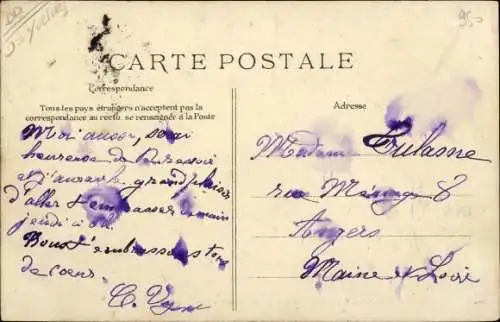 CARTE POSTALE
Correspondance
Tous les pays étrangers n'acceptent pas la
correspondance au recto, se renseigner à la Poste
Moi aussi, serai
heureuse de te revoir
et j'aurai le grand plaisir
d'aller t'embrasser demain
jeudi à
Bous t'embrassons tous
de cœur
C.
Adresse
Madame Trulasne
rue Ménage 8
Angers
Maine & Loire
95.-